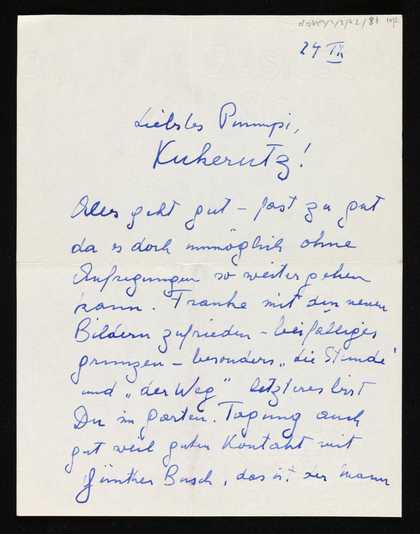 24 IX
Liebstes Pummpi,
Kukerutz!
Alles geht gut – fast zu gut
da es doch unmöglich ohne
Aufregungen so weiter gehen
kann. Franke mit den neuen
Bildern zufrieden – beifälliges
grunzen – besonders „die Stunde"
und „der Weg" letzteres bist
Du im Garten. Tagung auch
gut weil guter Kontakt mit
Günther Busch, das ist der Mann